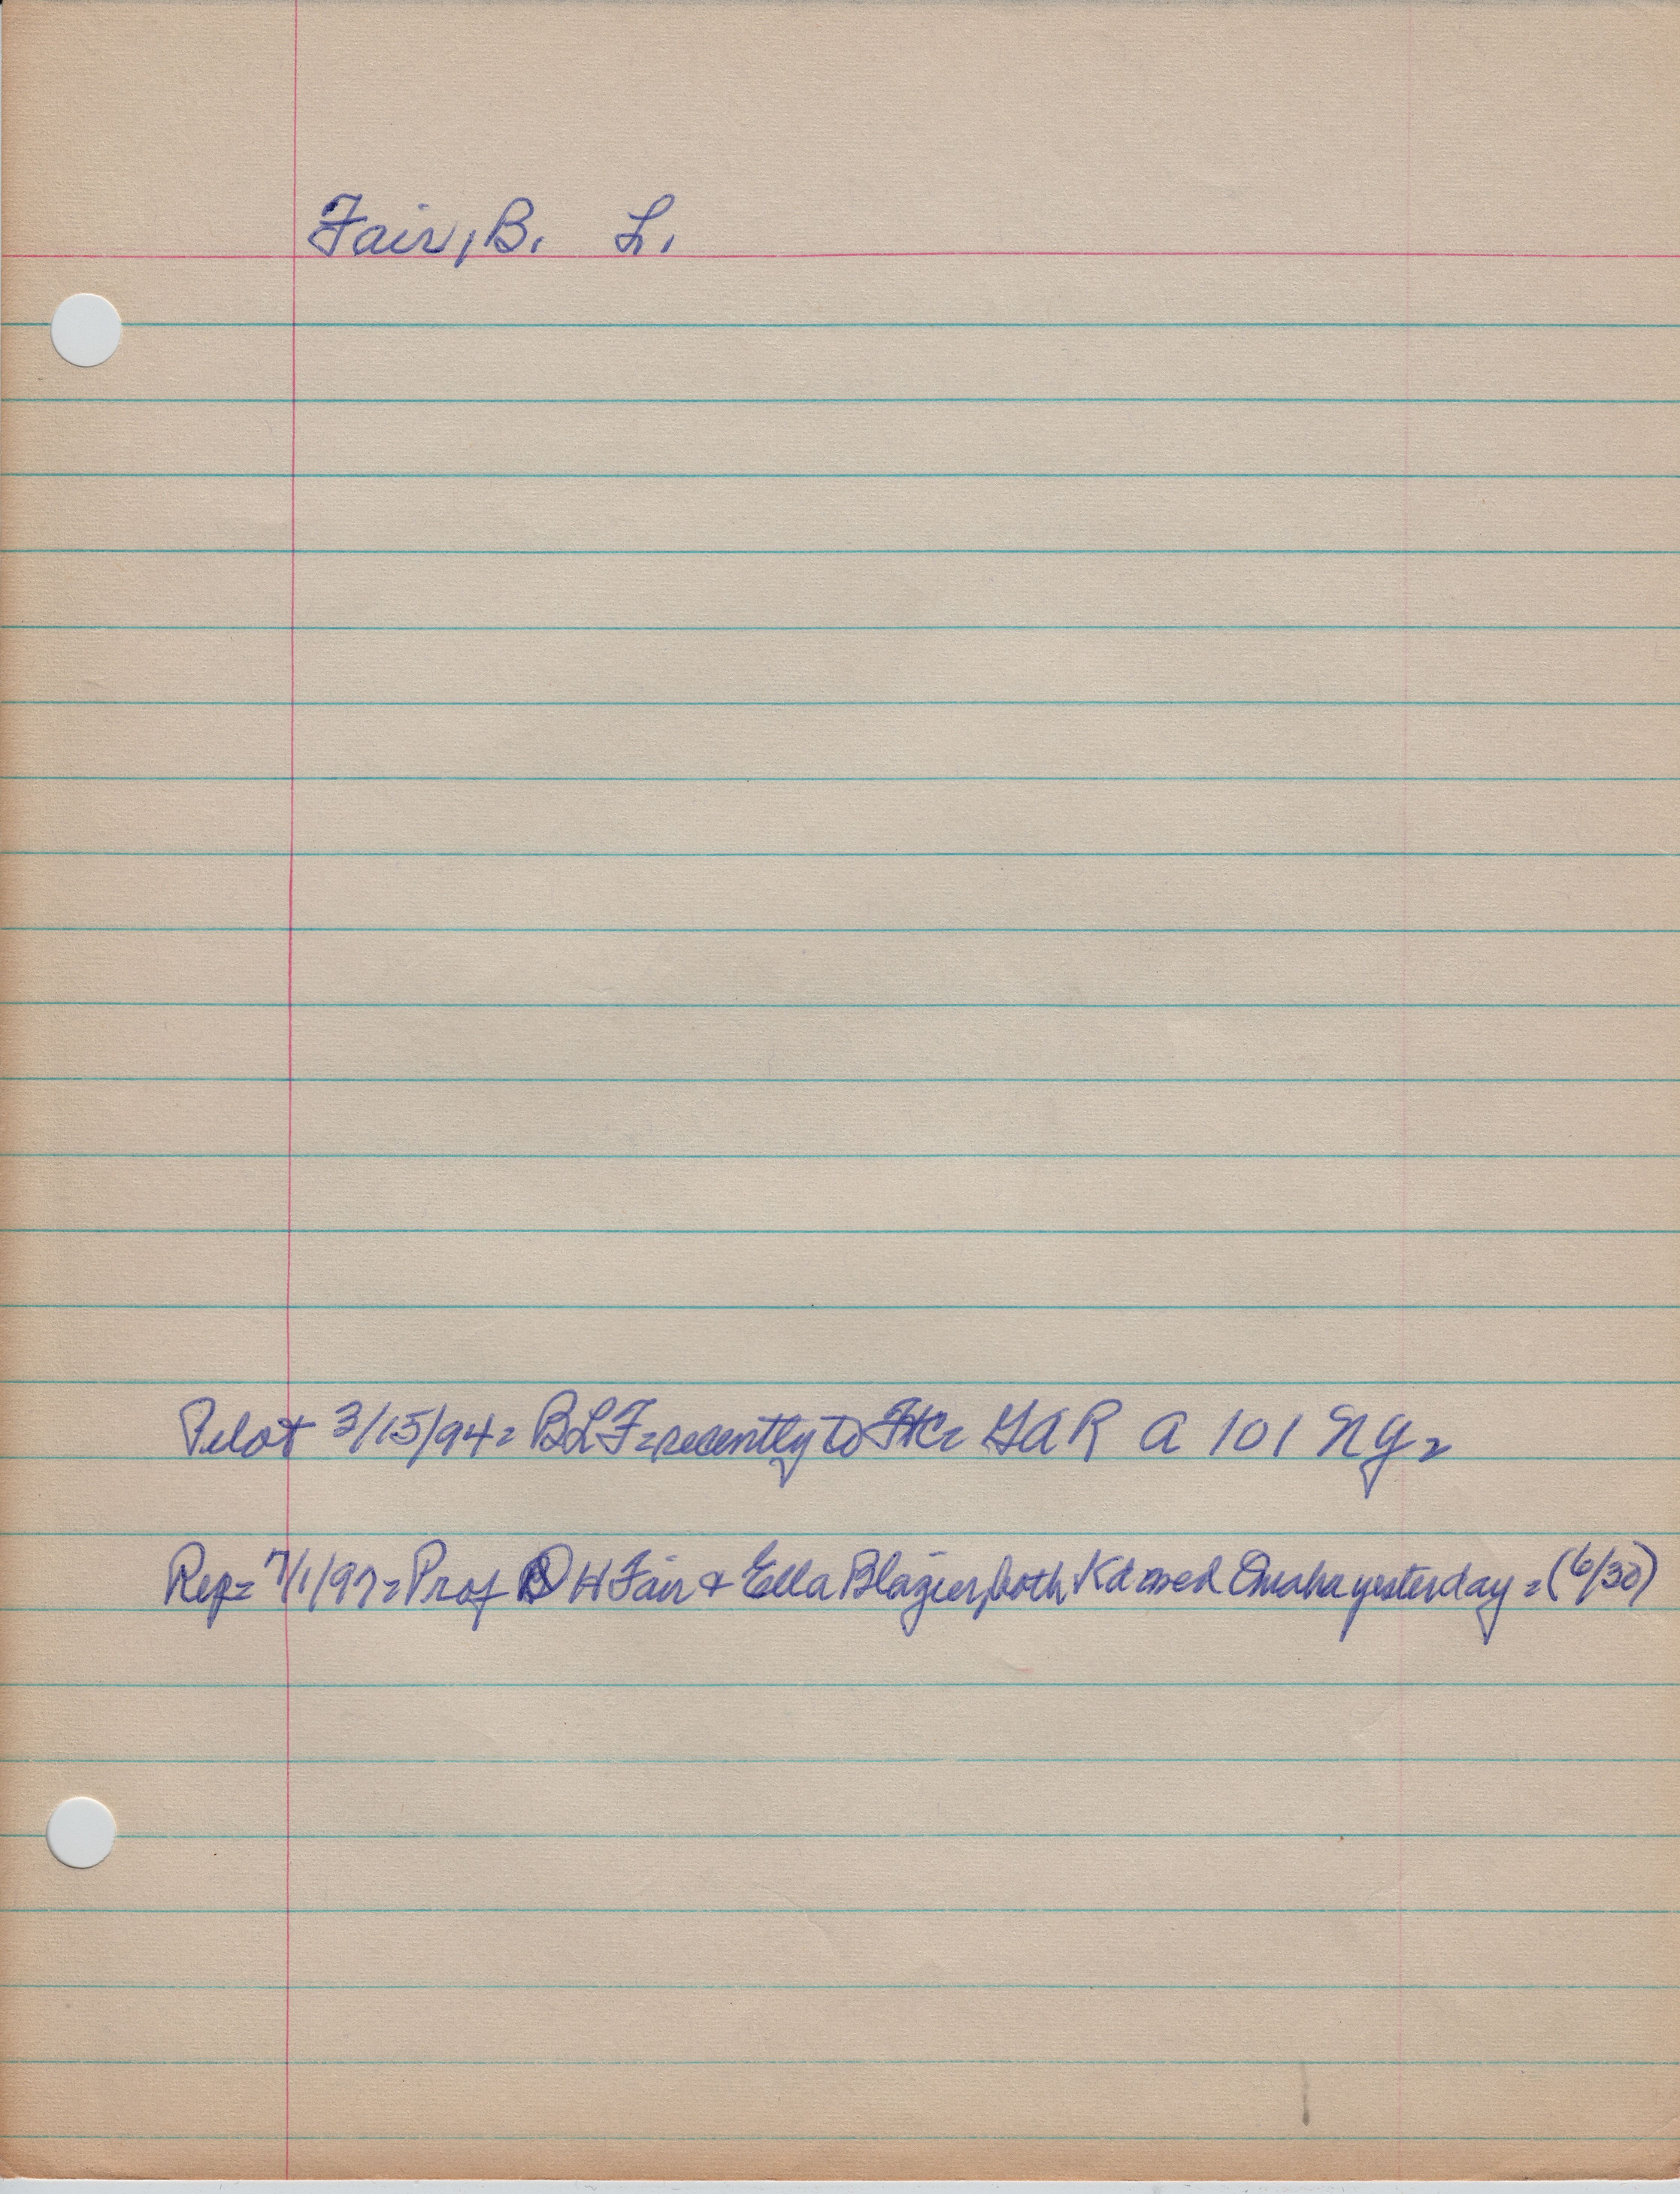 Fair, B. L.
Pilot 3/15/94= BLF=recently to HC= GAR A 101 NY=
Rep= 7/1/97= Prof D H Fair & Ella Blazier, both Kd med Omaha yesterday = (6/30)